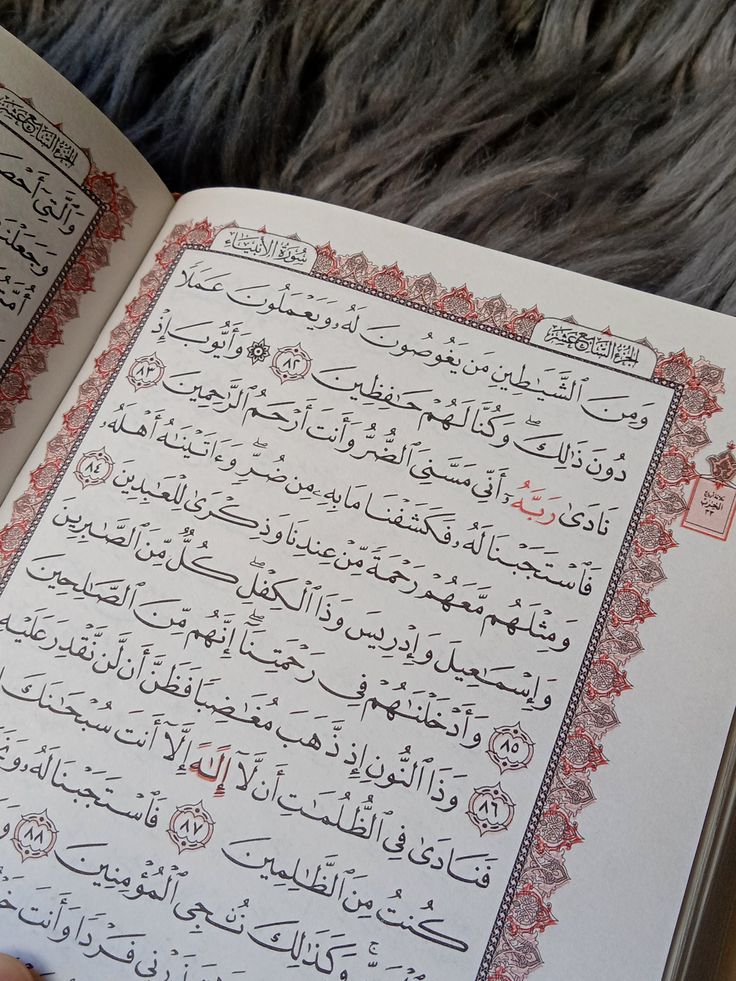 سُورَةُ الأَنبِيَاءِ
الجُزْءُ السَّابِعَ عَشَرَ
وَمِنَ ٱلشَّيَـٰطِينِ مَن يَغُوصُونَ لَهُۥ وَيَعْمَلُونَ عَمَلًا
دُونَ ذَٰلِكَ ۖ وَكُنَّا لَهُمْ حَـٰفِظِينَ ٨٢ ۞ وَأَيُّوبَ إِذْ
نَادَىٰ رَبَّهُۥٓ أَنِّى مَسَّنِىَ ٱلضُّرُّ وَأَنتَ أَرْحَمُ ٱلرَّٰحِمِينَ ٨٣
فَٱسْتَجَبْنَا لَهُۥ فَكَشَفْنَا مَا بِهِۦ مِن ضُرٍّ ۖ وَءَاتَيْنَـٰهُ أَهْلَهُۥ
وَمِثْلَهُم مَّعَهُمْ رَحْمَةً مِّنْ عِندِنَا وَذِكْرَىٰ لِلْعَـٰبِدِينَ ٨٤
وَإِسْمَـٰعِيلَ وَإِدْرِيسَ وَذَا ٱلْكِفْلِ ۖ كُلٌّ مِّنَ ٱلصَّـٰبِرِينَ
٨٥ وَأَدْخَلْنَـٰهُمْ فِى رَحْمَتِنَآ ۖ إِنَّهُم مِّنَ ٱلصَّـٰلِحِينَ
٨٦ وَذَا ٱلنُّونِ إِذ ذَّهَبَ مُغَـٰضِبًا فَظَنَّ أَن لَّن نَّقْدِرَ عَلَيْهِ
فَنَادَىٰ فِى ٱلظُّلُمَـٰتِ أَن لَّآ إِلَـٰهَ إِلَّآ أَنتَ سُبْحَـٰنَكَ
كُنتُ مِنَ ٱلظَّـٰلِمِينَ ٨٧ فَٱسْتَجَبْنَا لَهُۥ
وَكَذَٰلِكَ نُـۨجِى ٱلْمُؤْمِنِينَ ٨٨
فَرْدًا وَأَنتَ
ثلاثة أرباع
الحزب
٣٣
الجُزْءُ السَّابِعَ عَشَرَ
وَٱلَّتِىٓ